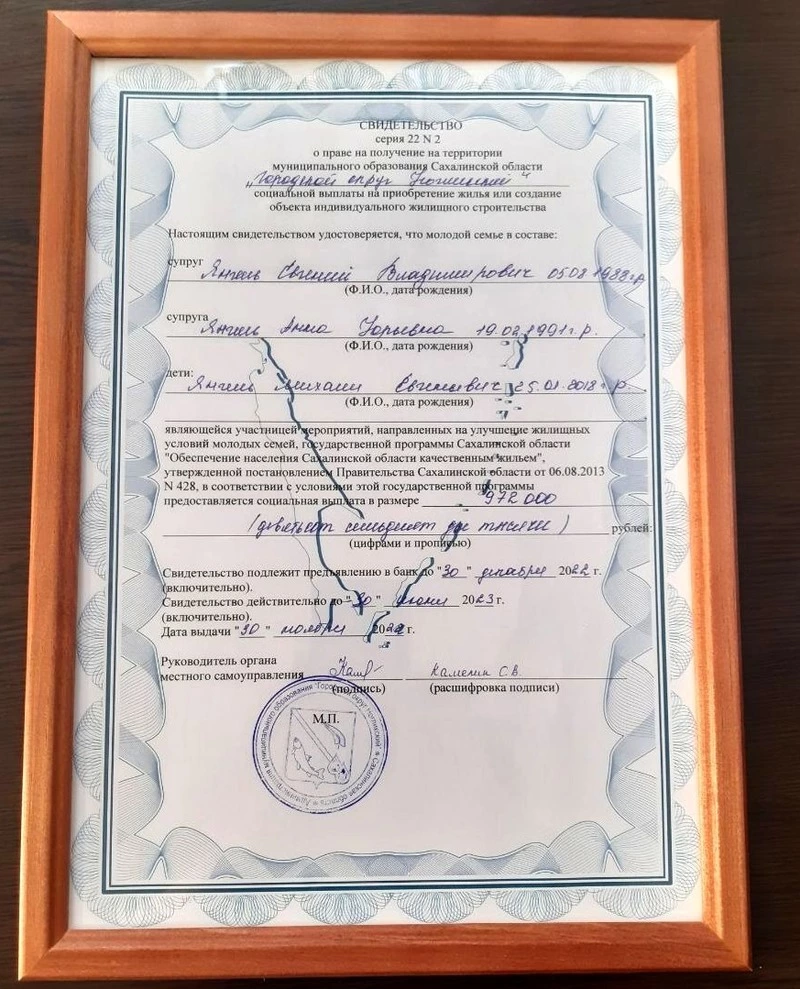 СВИДЕТЕЛЬСТВО
серия 22 N 2
о праве на получение на территории
муниципального образования Сахалинской области
"Городской округ Ногликский"
социальной выплаты на приобретение жилья или создание
объекта индивидуального жилищного строительства
Настоящим свидетельством удостоверяется, что молодой семье в составе:
супруг Янгель Евгений Владимирович 05.08.1988г.р
(Ф.И.О., дата рождения)
супруга Янгель Анна Юрьевна 19.02.1991г.р.
(Ф.И.О., дата рождения)
дети: Янгель Михаил Евгеньевич 25.01.2018г.р.
(Ф.И.О., дата рождения)
являющейся участницей мероприятий, направленных на улучшение жилищных
условий молодых семей, государственной программы Сахалинской области
"Обеспечение населения Сахалинской области качественным жильем",
утвержденной постановлением Правительства Сахалинской области от 06.08.2013
N 428, в соответствии с условиями этой государственной программы
предоставляется социальная выплата в размере 972 000
(девятьсот семьдесят две тысячи) рублей:
(цифрами и прописью)
Свидетельство подлежит предъявлению в банк до "30" декабря 2022 г.
(включительно).
Свидетельство действительно до "30" июня 2023 г.
(включительно).
Дата выдачи "30" ноября 2022 г.
Руководитель органа
местного самоуправления Кам Камелин С.В.
(подпись) (расшифровка подписи)
М.П.